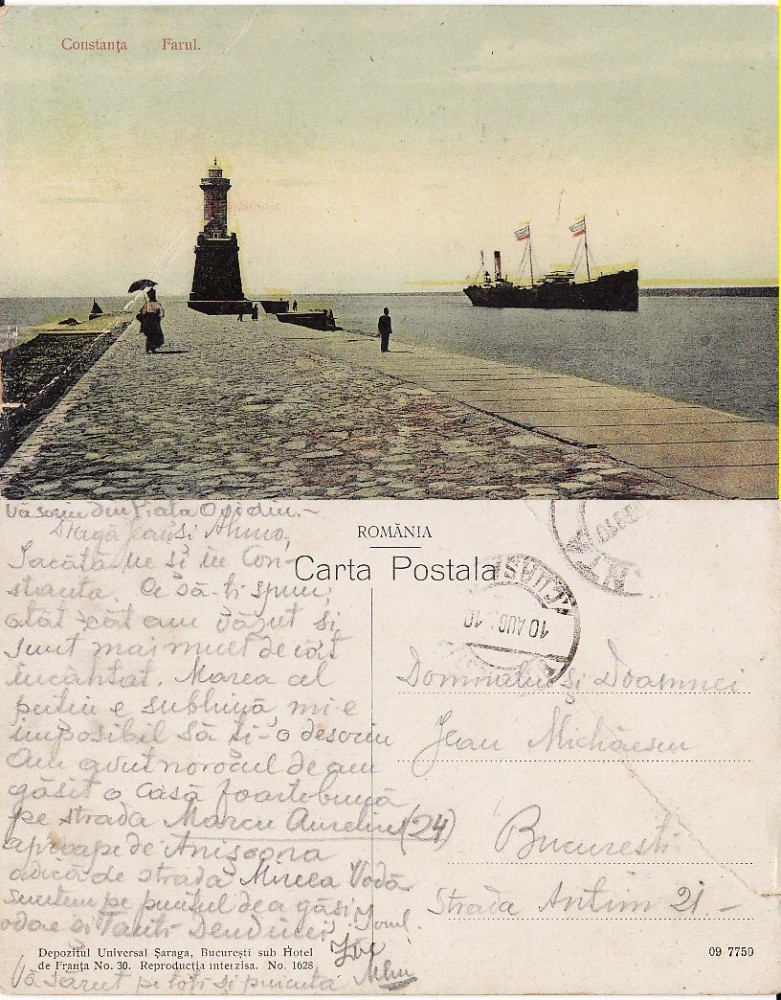 Constanţa Farul.
Vă scriu din Piata Ovidiu.-
Dragă Jean si
Iacătă-ne și în Con-
stanta. Ce să-ti spun,
atât cât am văzut si
sunt mai mult de cât
încântat. Marea cel
putin e sublimă, mi-e
imposibil să ți-o descriu
Am avut norocul de am
găsit o casă foarte bună
pe strada Marcu Aureliu (24)
aproape de
adică de strada Mircea Vodă.
suntem pe punctul de a găsi
odae și Tanti
Vă sărut pe toți și puicuta
ROMÂNIA
Carta Postala
10 AUG
Domnului și Doamnei
Jean Michăescu
Bucuresti
Strada Antim 21.-
Depozitul Universal Şaraga, Bucureşti sub Hotel
de Franţa No. 30. Reproducţia interzisa. No. 1628
09 7750